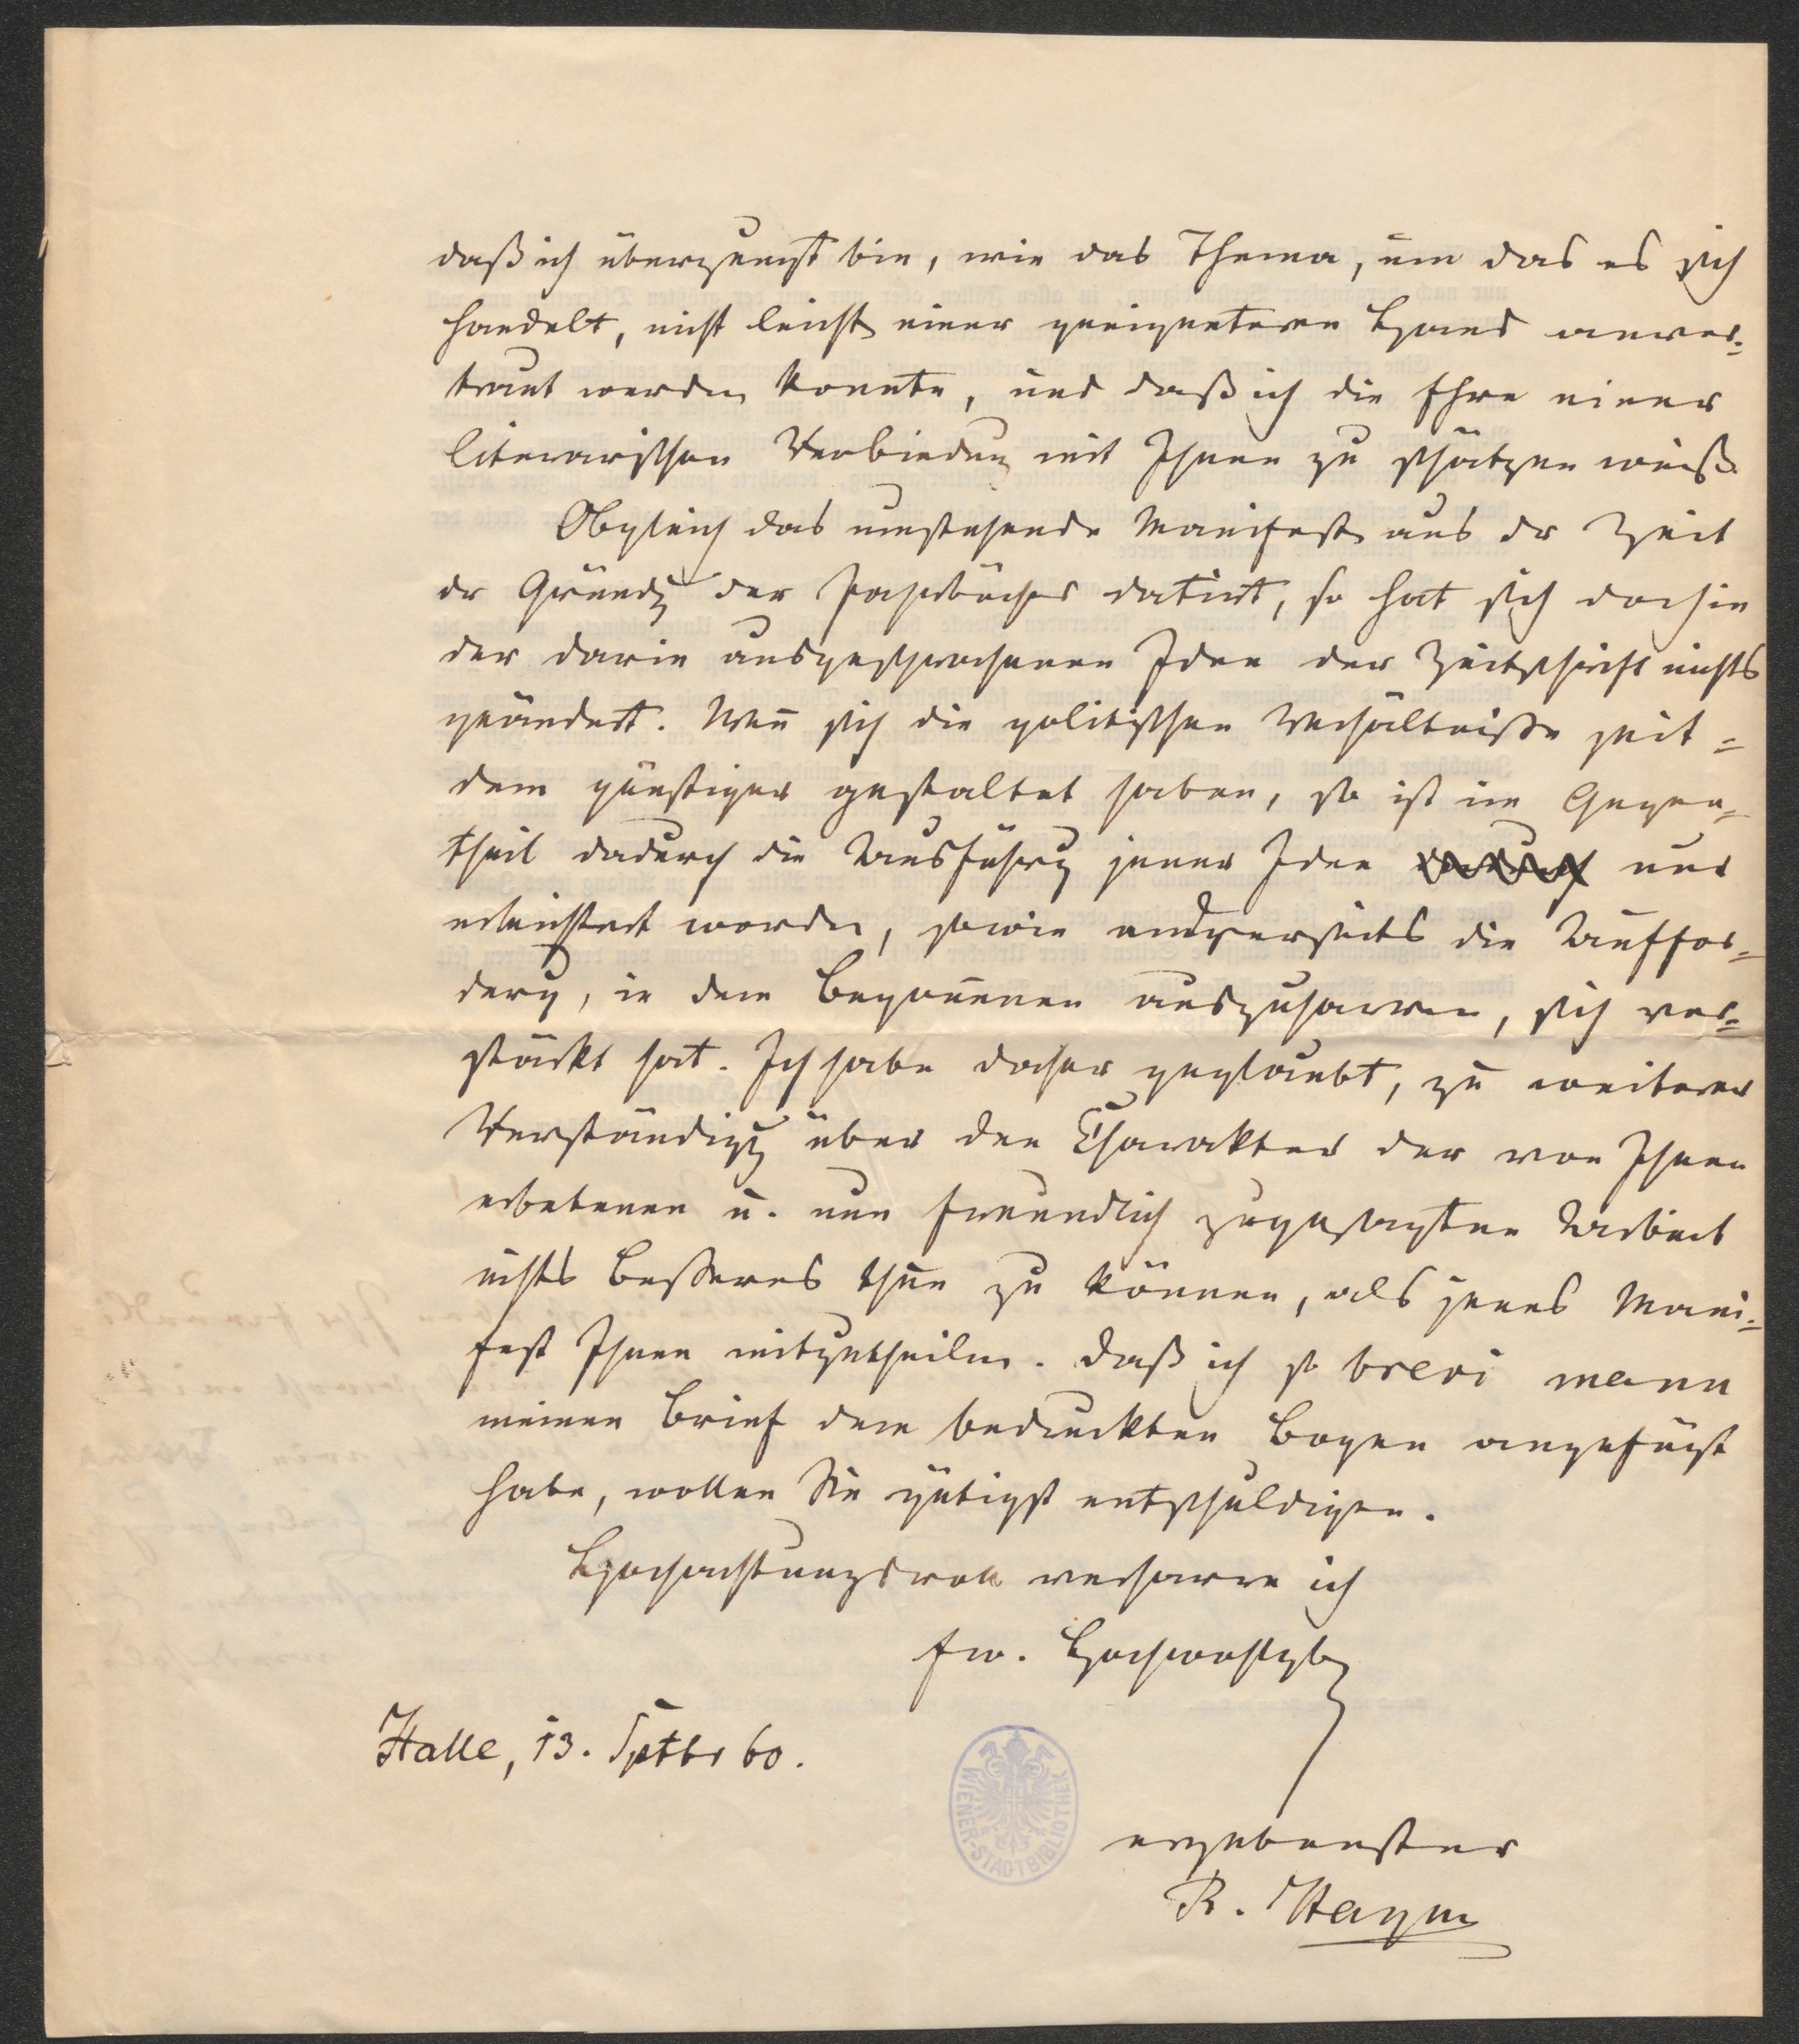 daß ich überzeugt bin, wie das Thema, um das es sich
handelt, nicht leicht einer geeigneteren Hand anver=
traut werden konnte, und daß ich die Ehre einer
literarischen Verbindung mit Ihnen zu schätzen weiß.
Obgleich das umstehende Manifest aus der Zeit
der Gründg der Jahrbücher datirt, so hat sich doch in
der darin ausgesprochenen Idee der Zeitschrift nichts
geändert. Weñ sich die politischen Verhältnisse seit=
dem günstiger gestaltet haben, so ist im Gegen=
theil dadurch die Ausführg jener Idee nur
erleichtert worden, sowie andrerseits die Auffor=
derg, in dem Begoñenen auszuharren, sich ver=
stärkt hat. Ich habe daher geglaubt, zu weiterer
Verständigg über den Charakter der von Ihnen
erbetenen u. nun freundlich zugesagten Arbeit
nichts Besseres thun zu können, als jenes Mani=
fest Ihnen mitzutheilen. Daß ich so brevi manu
meinen Brief dem bedruckten Bogen angefügt
habe, wollen Sie gütigst entschuldigen.
Hochachtungsvoll verharre ich
Ew. Hochwohlgb
Halle, 13. Sptbr 60.
WIENER-STADTBIBLIOTHEK
ergebenster
R. Haym